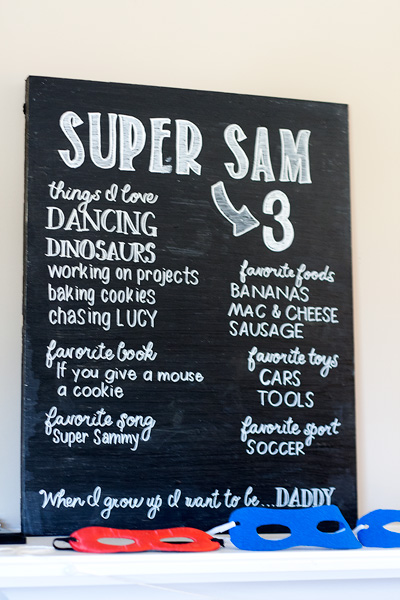 SUPER SAM
3
things I love
DANCING
DINOSAURS
working on projects
baking cookies
chasing LUCY
favorite book
If you give a mouse
a cookie
favorite song
Super Sammy
favorite foods
BANANAS
MAC & CHEESE
SAUSAGE
favorite toys
CARS
TOOLS
favorite sport
SOCCER
When I grow up I want to be... DADDY